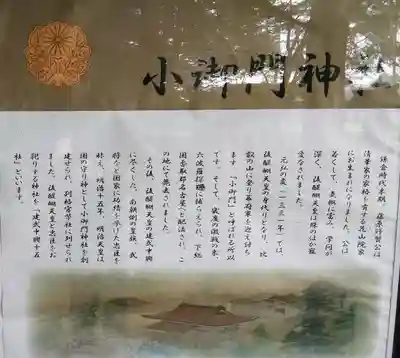 小御門神社
鎌倉時代末期、藤原師賢公は
清華家の家格を有する花山院家
にお生まれになりました。公は
若くして、文机に富み、学問が
深く、後醍醐天皇は殊のほか寵
愛なされました。
元弘の変(一三三一年)では、
後醍醐天皇の身代りとなり、比
叡の山に登り幕府軍を迎え討ち
ます。「小御門」と呼ばれる所以
です。そして、数度の激戦の末、
六波羅探題に捕らえられ、下総
国香取郡名古屋へと配流され、こ
の地で薨去されました。
その後、後醍醐天皇の建武中興
に尽くした、南朝側の皇族、武
将など国家に功績を挙げた忠臣を
称え、明治十五年、明治天皇は
国の守り神として小御門神社を創
建せられ、別格官幣社に列せられ
ました。後醍醐天皇と忠臣をお
祀りする神社を「建武中興十五
社」といいます。